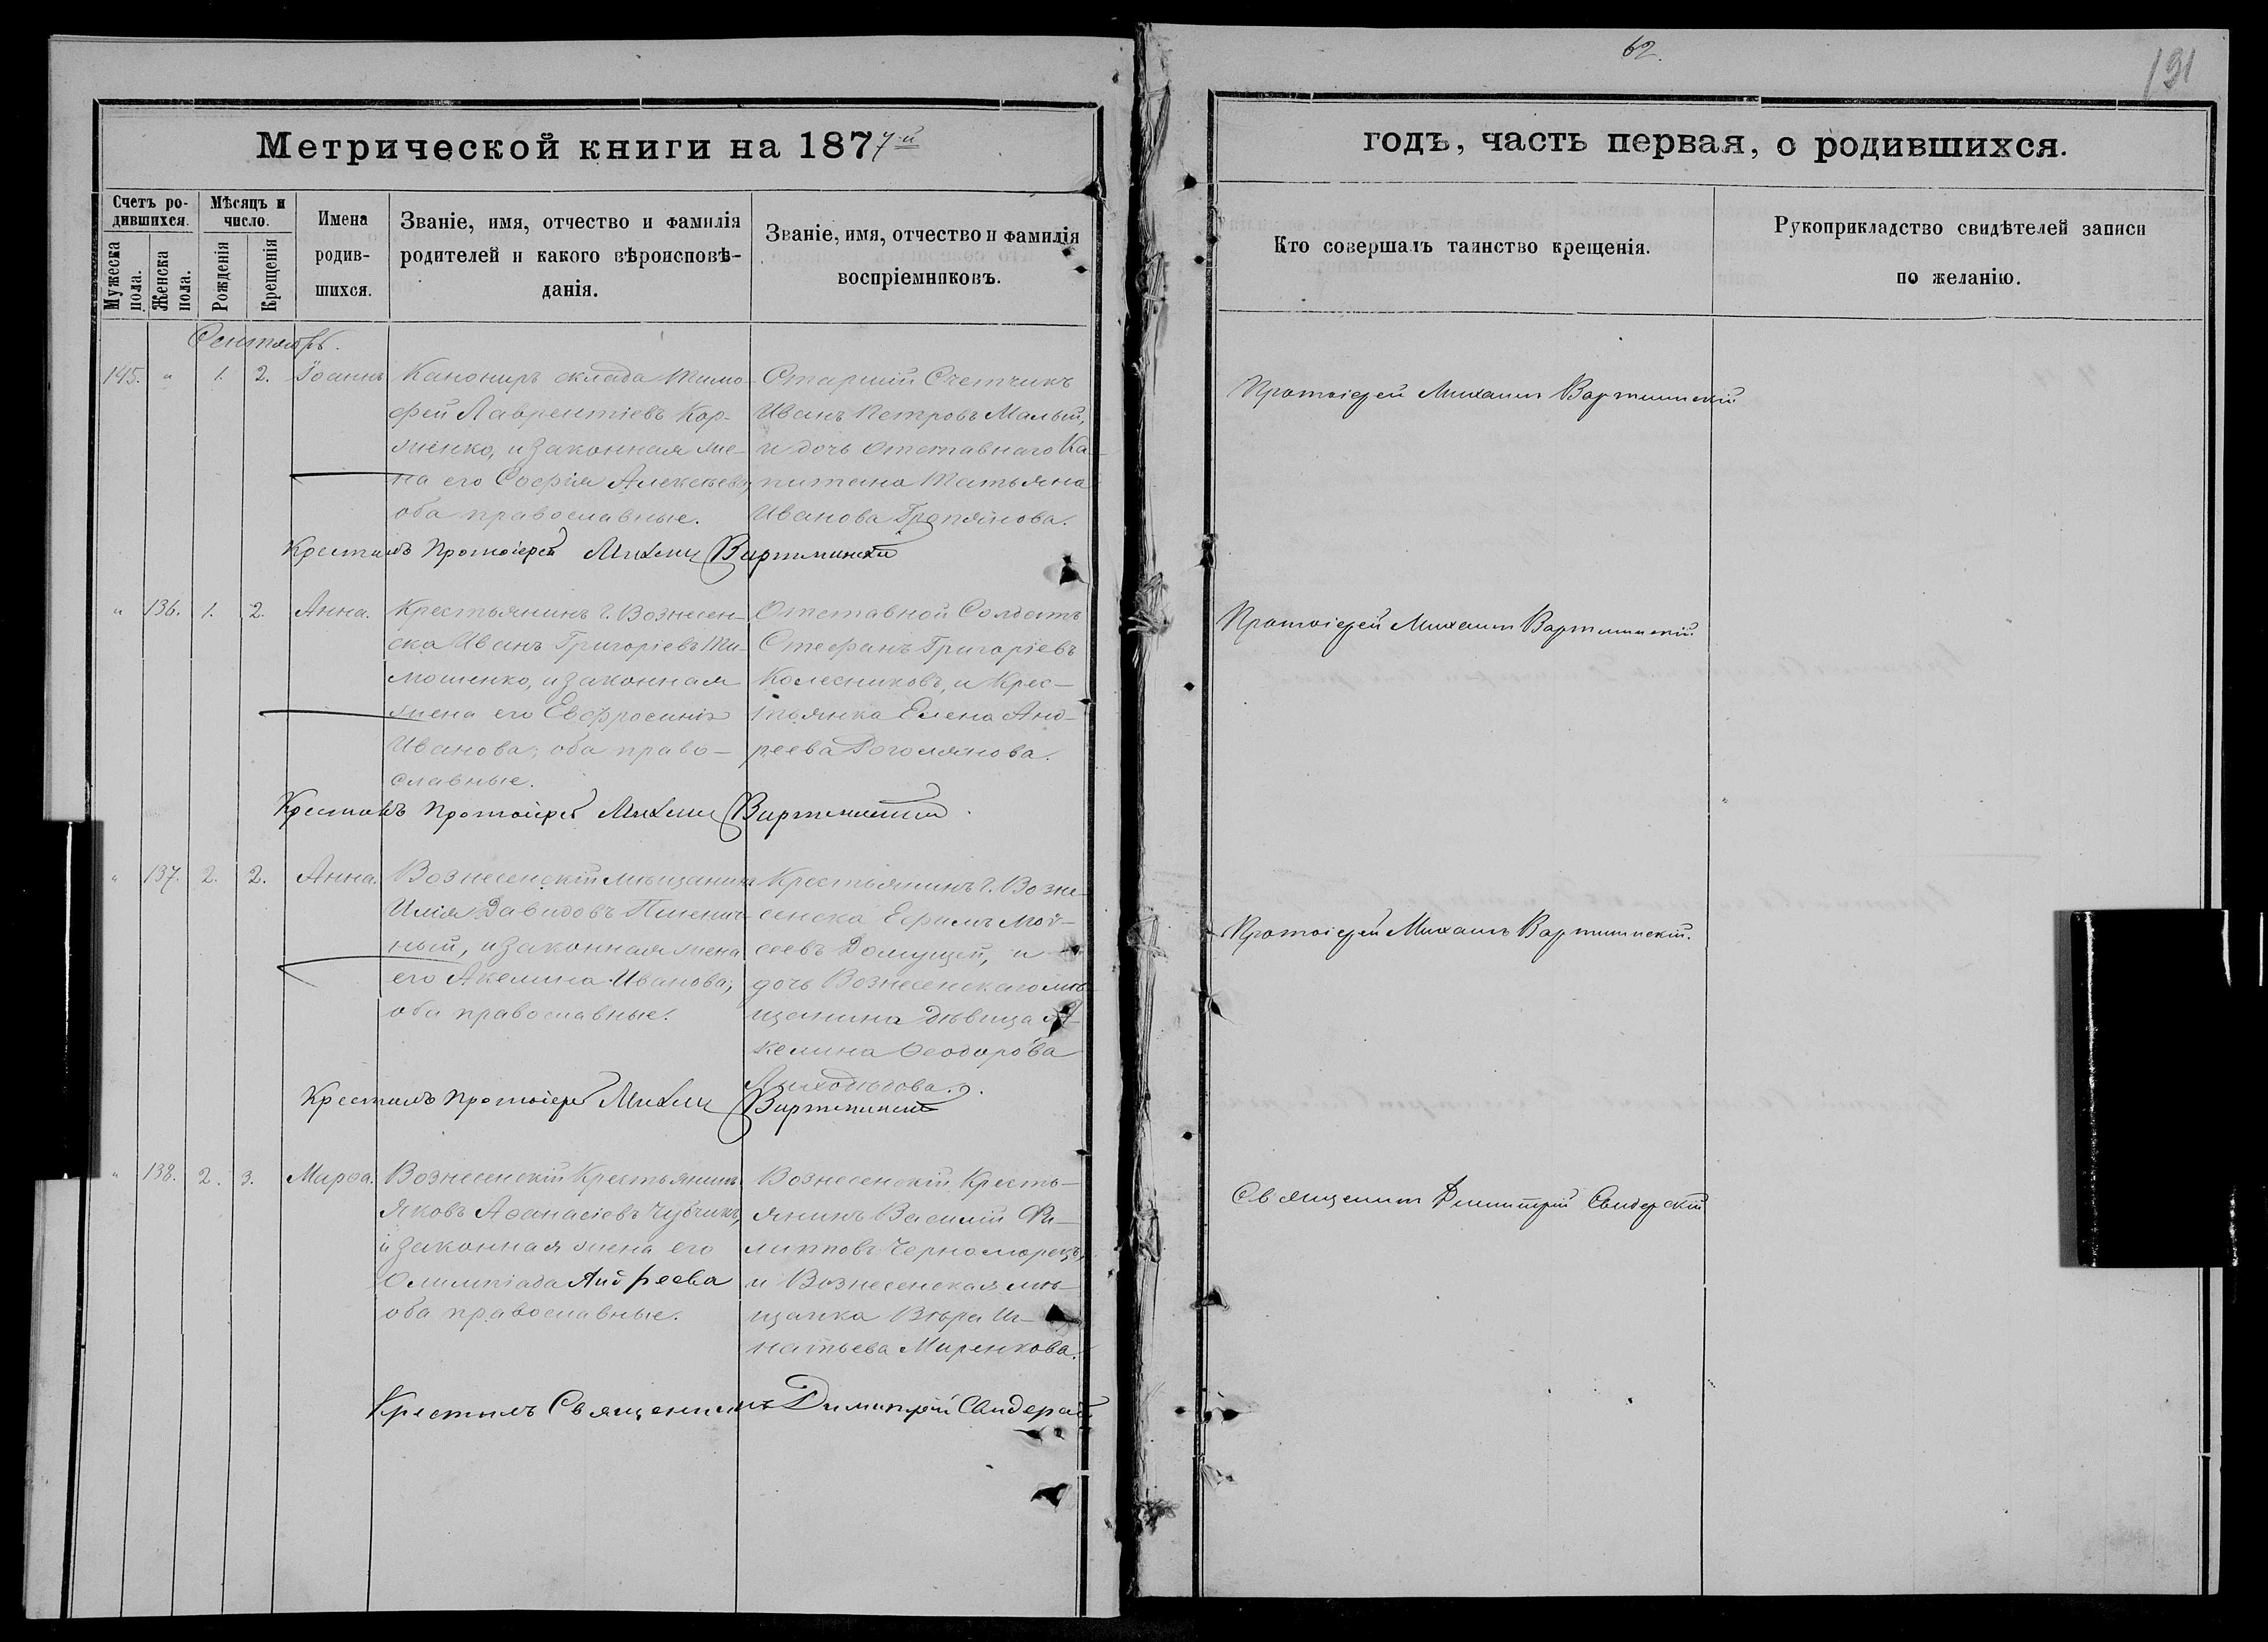 62.
191
Метрической книги на 1877-й
годъ, часть первая, о родившихся.
Счетъ ро-
дившихся.
Мужеска
пола.
Женска
пола.
Мѣсяцъ и
число.
Рожденія
Крещенія
Имена
родив-
шихся.
Званіе, имя, отчество и фамилія
родителей и какого вѣроисповѣ-
данія.
Званіе, имя, отчество и фамилія
воспріемниковъ.
Кто совершалъ таинство крещенія.
Рукоприкладство свидѣтелей записи
по желанію.
Сентябрь.
145. " 1. 2. Іоаннъ
Канониръ склада Тимо-
фей Лаврентіевъ Кор-
ніенко, и законная же-
на его Софія Алексѣева,
оба православные.
Старшій Счетчикъ
Иванъ Петровъ Малый,
и дочь отставнаго Ка-
питана Татьяна
Иванова
Протоіерей Михаилъ Вартминскій
Крестилъ Протоіерей Михаилъ Вартминскій
" 136. 1. 2. Анна.
Крестьянинъ г. Вознесен-
ска Иванъ Григоріевъ Ти-
мошенко, и законная
жена его Евфросинія
Иванова; оба право-
славные.
Отставной Солдатъ
Стефанъ Григоріевъ
Колесниковъ, и Крес-
тьянка Елена Анд-
реева
Протоіерей Михаилъ Вартминскій
Крестилъ Протоіерей Михаилъ Вартминскій.
" 137. 2. 2. Анна.
Вознесенскій мѣщанинъ
Илія Давидовъ Пшенич-
ный, и законная жена
его Акелина Иванова;
оба православные.
Крестьянинъ г. Возне-
сенска Ефимъ Мой-
сеевъ Домущей, и
дочь Вознесенскаго мѣ-
щанина дѣвица А-
келина Ѳеодорова
Протоіерей Михаилъ Вартминскій.
Крестилъ Протоіерей Михаилъ Вартминскій
" 138. 2. 3. Марѳа.
Вознесенскій Крестьянинъ
Яковъ Аѳанасіевъ Чубчикъ,
и законная жена его
Олимпіада Андреева
оба православные.
Вознесенскій Кресть-
янинъ Василій Фи-
липповъ Черноморецъ,
и Вознесенская мѣ-
щанка Вѣра Иг-
натьева Миренкова.
Священникъ Димитрій Свидерскій
Крестилъ Священникъ Димитрій Свидерскій